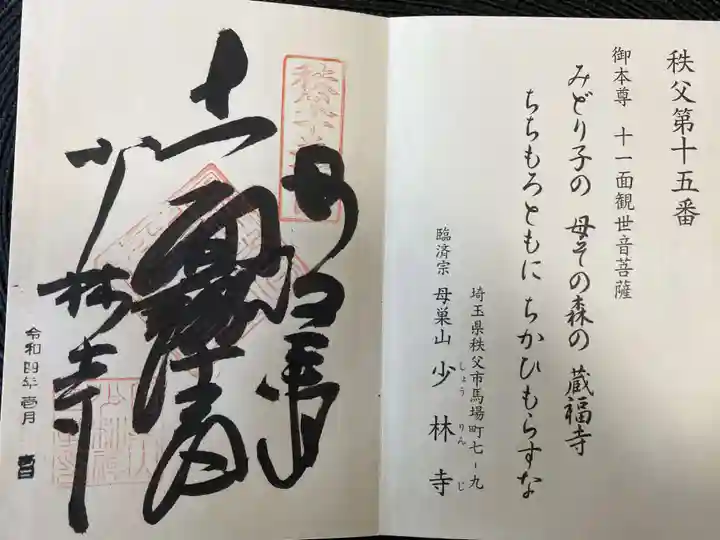 秩父第十五番
御本尊 十一面観世音菩薩
みどり子の 母その森の 蔵福寺
ちちもろともに ちかひもらすな
埼玉県秩父市馬場町七-九
臨済宗 母巣山 少林寺
しょう りん じ
十一面
少林寺
令和四年壱月